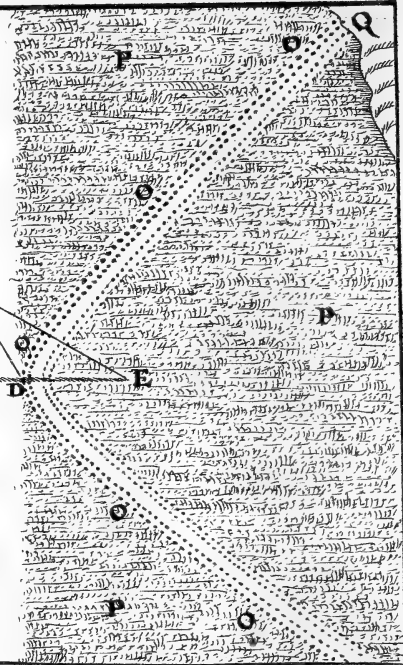 O Q
P
O
P
O
D E
O
P O